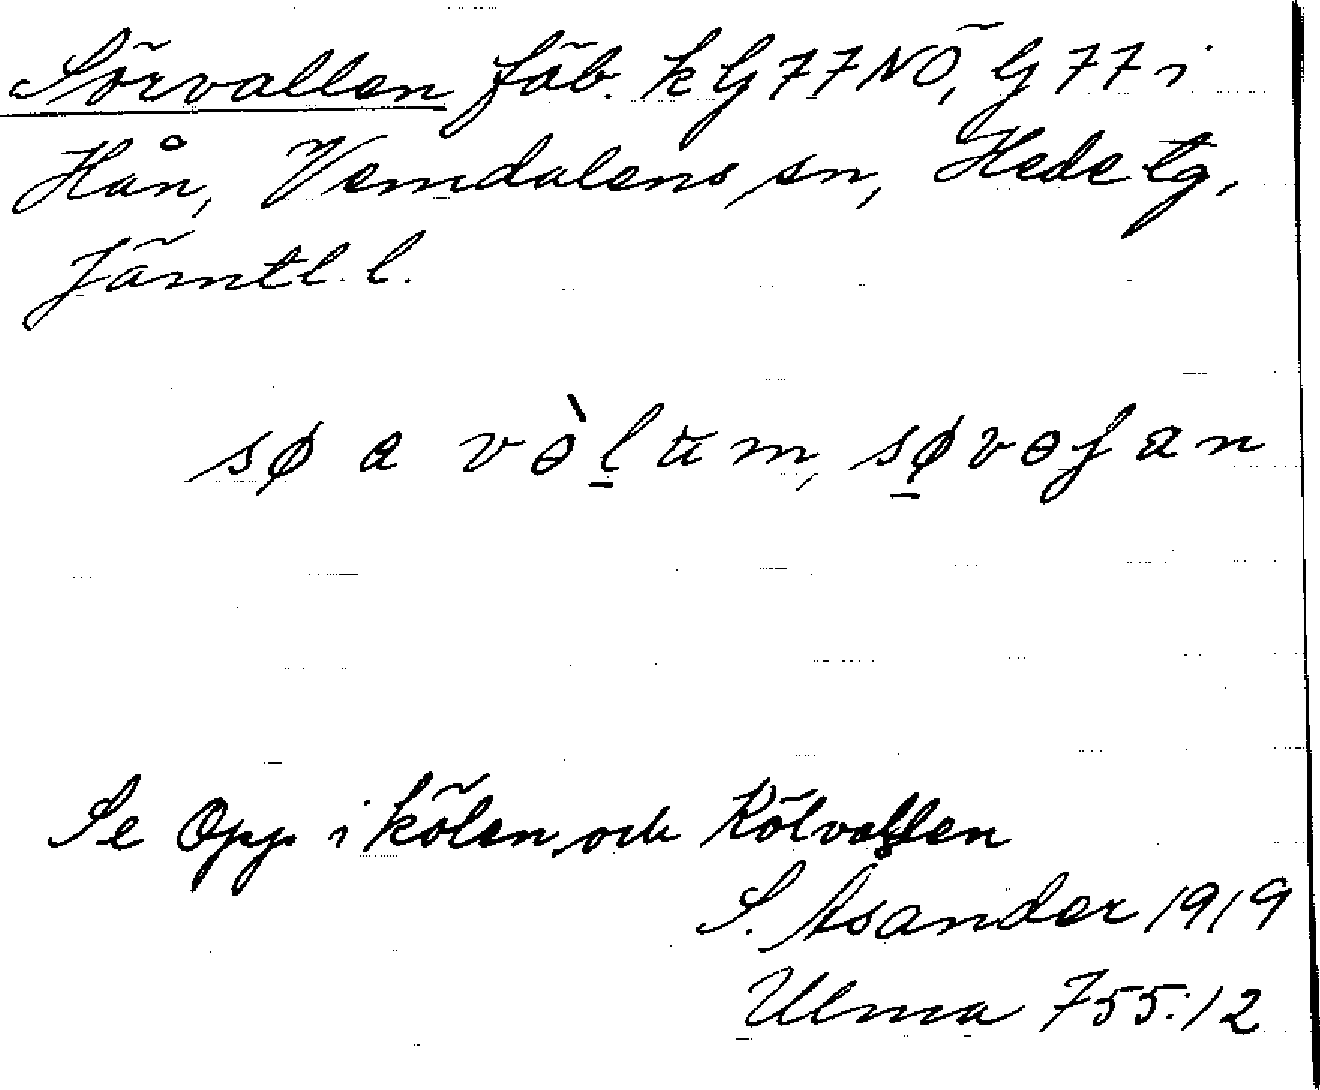 Sörvallen fäb. k G 77 NÖ, G 77 i
Hån, Vemdalens sn, Hede tg,
Jämtl. l.
sø a vàlum, søvolan
Se Opp i kölen och Kölvallen
S. Åsander 1919
Ulma 755:12